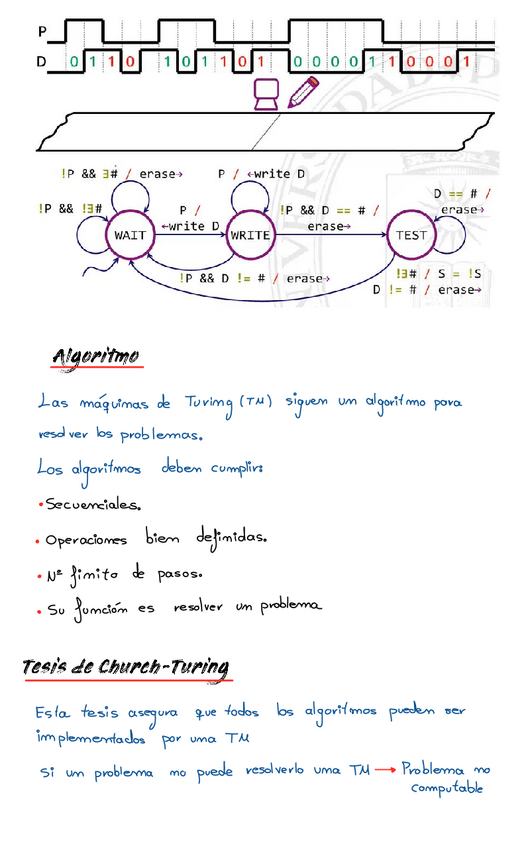 P
D 0 1 1 0 1 0 1 1 0 1 0 0 0 0 1 1 0 0 0 1
!P && ∃# / erase→
P / ←write D
D == # /
erase→
!P && !∃#
P /
←write D
!P && D == # /
erase→
WAIT
WRITE
TEST
!P && D != # / erase→
!∃# / S = !S
D != # / erase→
Algoritmo
Las máquinas de Turing (TM) siguen un algoritmo para
resolver los problemas.
Los algoritmos deben cumplir:
• Secuenciales.
• Operaciones bien definidas.
• Nº finito de pasos.
• Su función es resolver un problema
Tesis de Church-Turing
Esta tesis asegura que todos los algoritmos pueden ser
implementados por una TM
Si un problema no puede resolverlo una TM → Problema no
computable